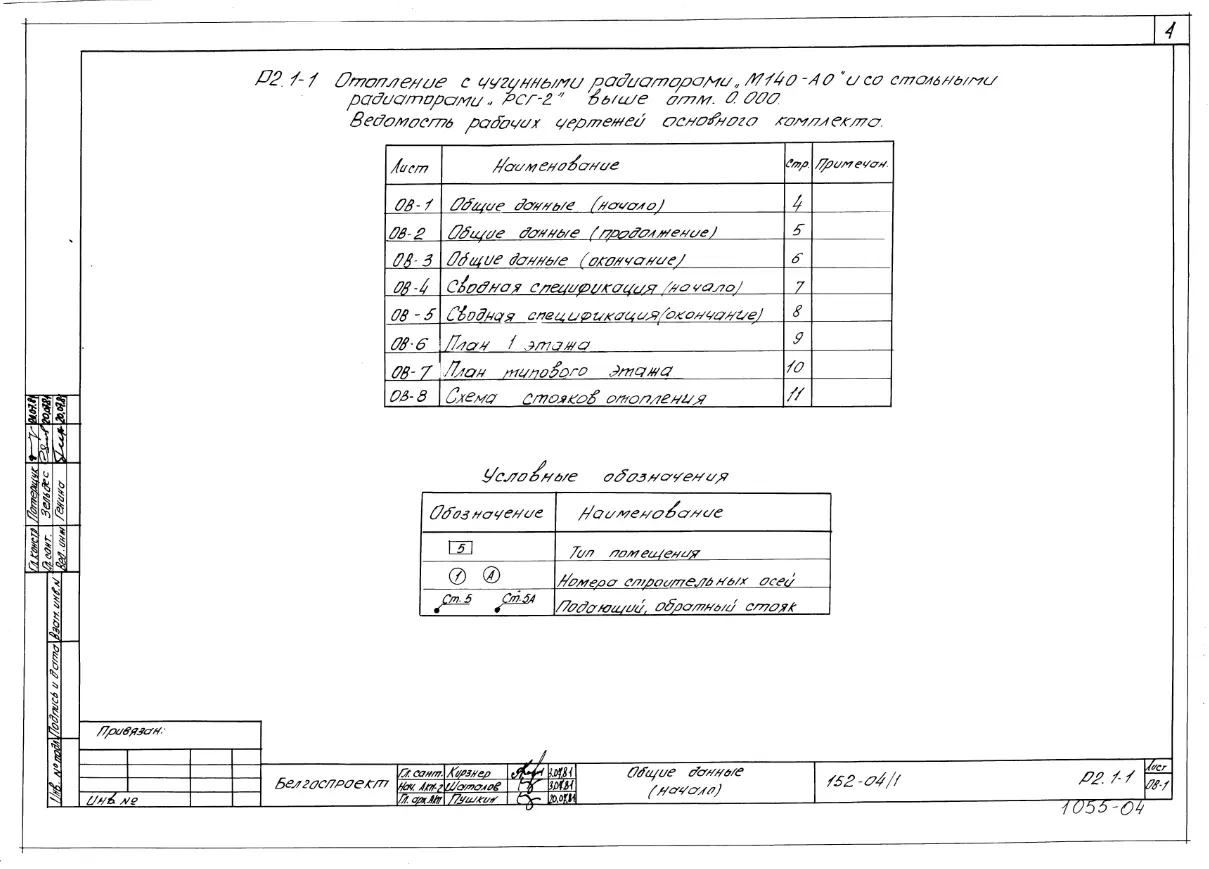 4
Р2.1-1 Отопление с чугунными радиаторами „М140-АО" и со стальными
радиаторами „РСГ-2" выше отм. 0.000
Ведомость рабочих чертежей основного комплекта.
Лист Наименование Стр. Примечан.
ОВ-1 Общие данные (начало) 4
ОВ-2 Общие данные (продолжение) 5
ОВ-3 Общие данные (окончание) 6
ОВ-4 Сводная спецификация (начало) 7
ОВ-5 Сводная спецификация (окончание) 8
ОВ-6 План 1 этажа 9
ОВ-7 План типового этажа 10
ОВ-8 Схема стояков отопления 11
Условные обозначения
Обозначение Наименование
5 Тип помещения
1 А Номера строительных осей
Ст.5 Ст.5А Подающий, обратный стояк
Гл.констр Потерщук
Гл.сант. Зельдес 20.07.81
Вед.инж Генина 20.07.81
Взам.инв.№
Подпись и дата
Инв.№подл
Привязан:
Инв №
Белгоспроект
Гл.сант. Кирзнер 3.07.81
Нач. Акт-2 Шаталов 3.07.81
Гл. арх. Пушкин 20.07.81
Общие данные
(начало)
152-04/1
Р2.1-1
Лист
ОВ-1
1055-04